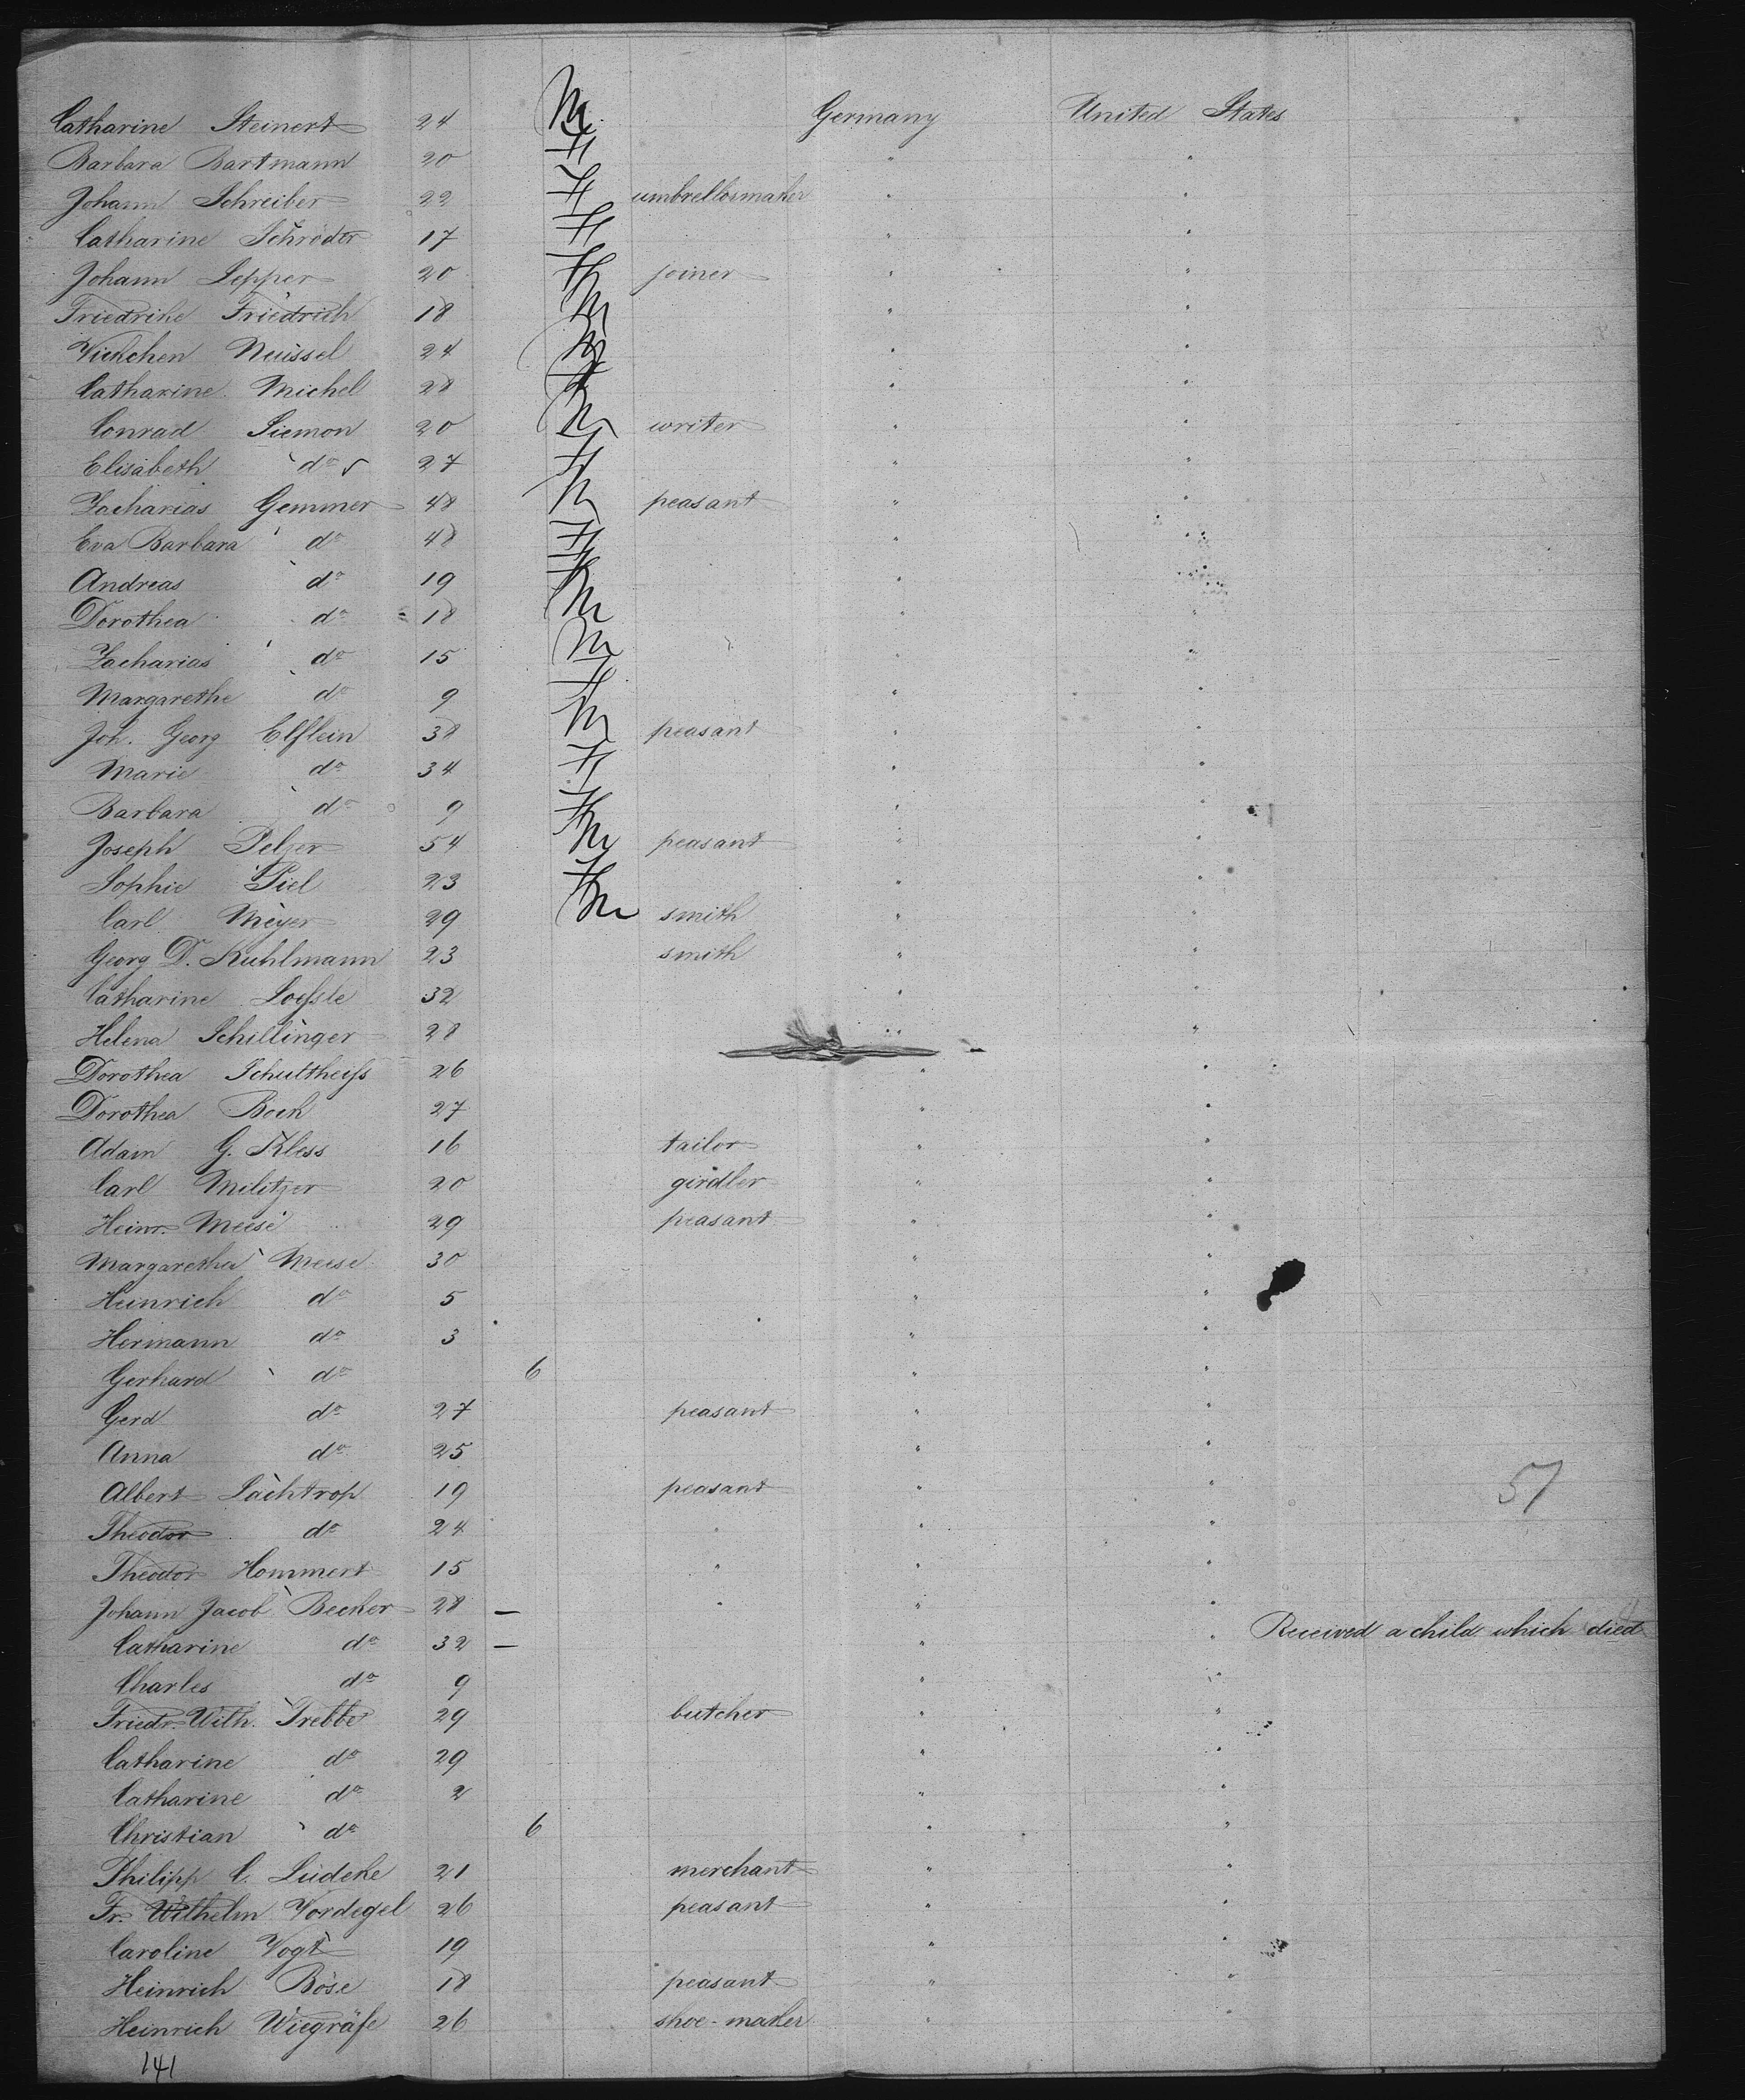 Catharine Steinert 24 M Germany United States
Barbara Bartmann 20 F " "
Johann Schreiber 22 F umbrellosmaker " "
Catharine Schröder 17 F " "
Johann Sepper 20 F joiner " "
Friedrike Friedrich 18 M " "
24 M " "
Catharine Michel 28 F " "
Conrad Siemon 20 M writer " "
Elisabeth do 27 F " "
Zacharias Gemmer 48 M peasant " "
Eva Barbara do 48 F " "
Andreas do 19 F " "
Dorothea do 18 M " "
Zacharias do 15 M " "
Margarethe do 9 F " "
Joh. Georg Elflein 38 M peasant " "
Marie do 34 F " "
Barbara do 9 F " "
Joseph Pelzer 54 M peasant " "
Sophie Piel 23 F " "
Carl Meyer 29 M smith " "
Georg D. Kuhlmann 23 smith " "
Catharine 32 " "
Helena Schillinger 28 " "
Dorothea Schultheiss 26 " "
Dorothea Bock 27 " "
Adam G. Kless 16 tailor " "
Carl Militzer 20 girdler " "
Heinr. Meese 29 peasant " "
Margaretha Meese 30 " "
Heinrich do 5 " "
Hermann do 3 " "
Gerhard do 6 " "
Gerd do 27 peasant " "
Anna do 25 " "
Albert Lächtrop 19 peasant " "
57
Theodor do 24 " " "
Theodor Hommert 15 " " "
Johann Jacob Becker 28 — " " "
Catharine do 32 — " " Received a child which died
Charles do 9 " "
Friedr. Wilh. Trebbe 29 butcher " "
Catharine do 29 " "
Catharine do 2 " "
Christian do 6 " "
Philipp C. Lüdeke 21 merchant " "
Fr. Wilhelm Vordegel 26 peasant " "
Caroline Vogt 19 " "
Heinrich Böse 18 peasant " "
Heinrich Wiegräfe 26 shoe-maker " "
141